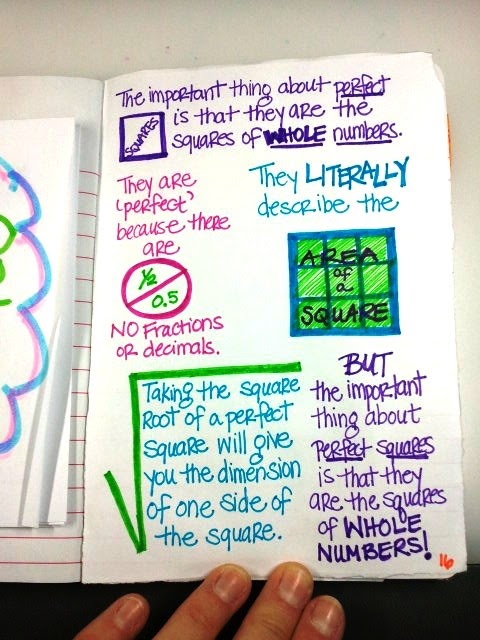 The important thing about perfect
SQUARES is that they are the
squares of WHOLE numbers.
They are
'perfect'
because there
are
1/2
0.5
NO Fractions
OR decimals.
They LITERALLY
describe the
AREA
of
a
SQUARE
Taking the square
Root of a perfect
square will give
you the dimension
of one side of
the square.
BUT
the important
thing about
Perfect squares
is that they
are the squares
of WHOLE
NUMBERS!
16